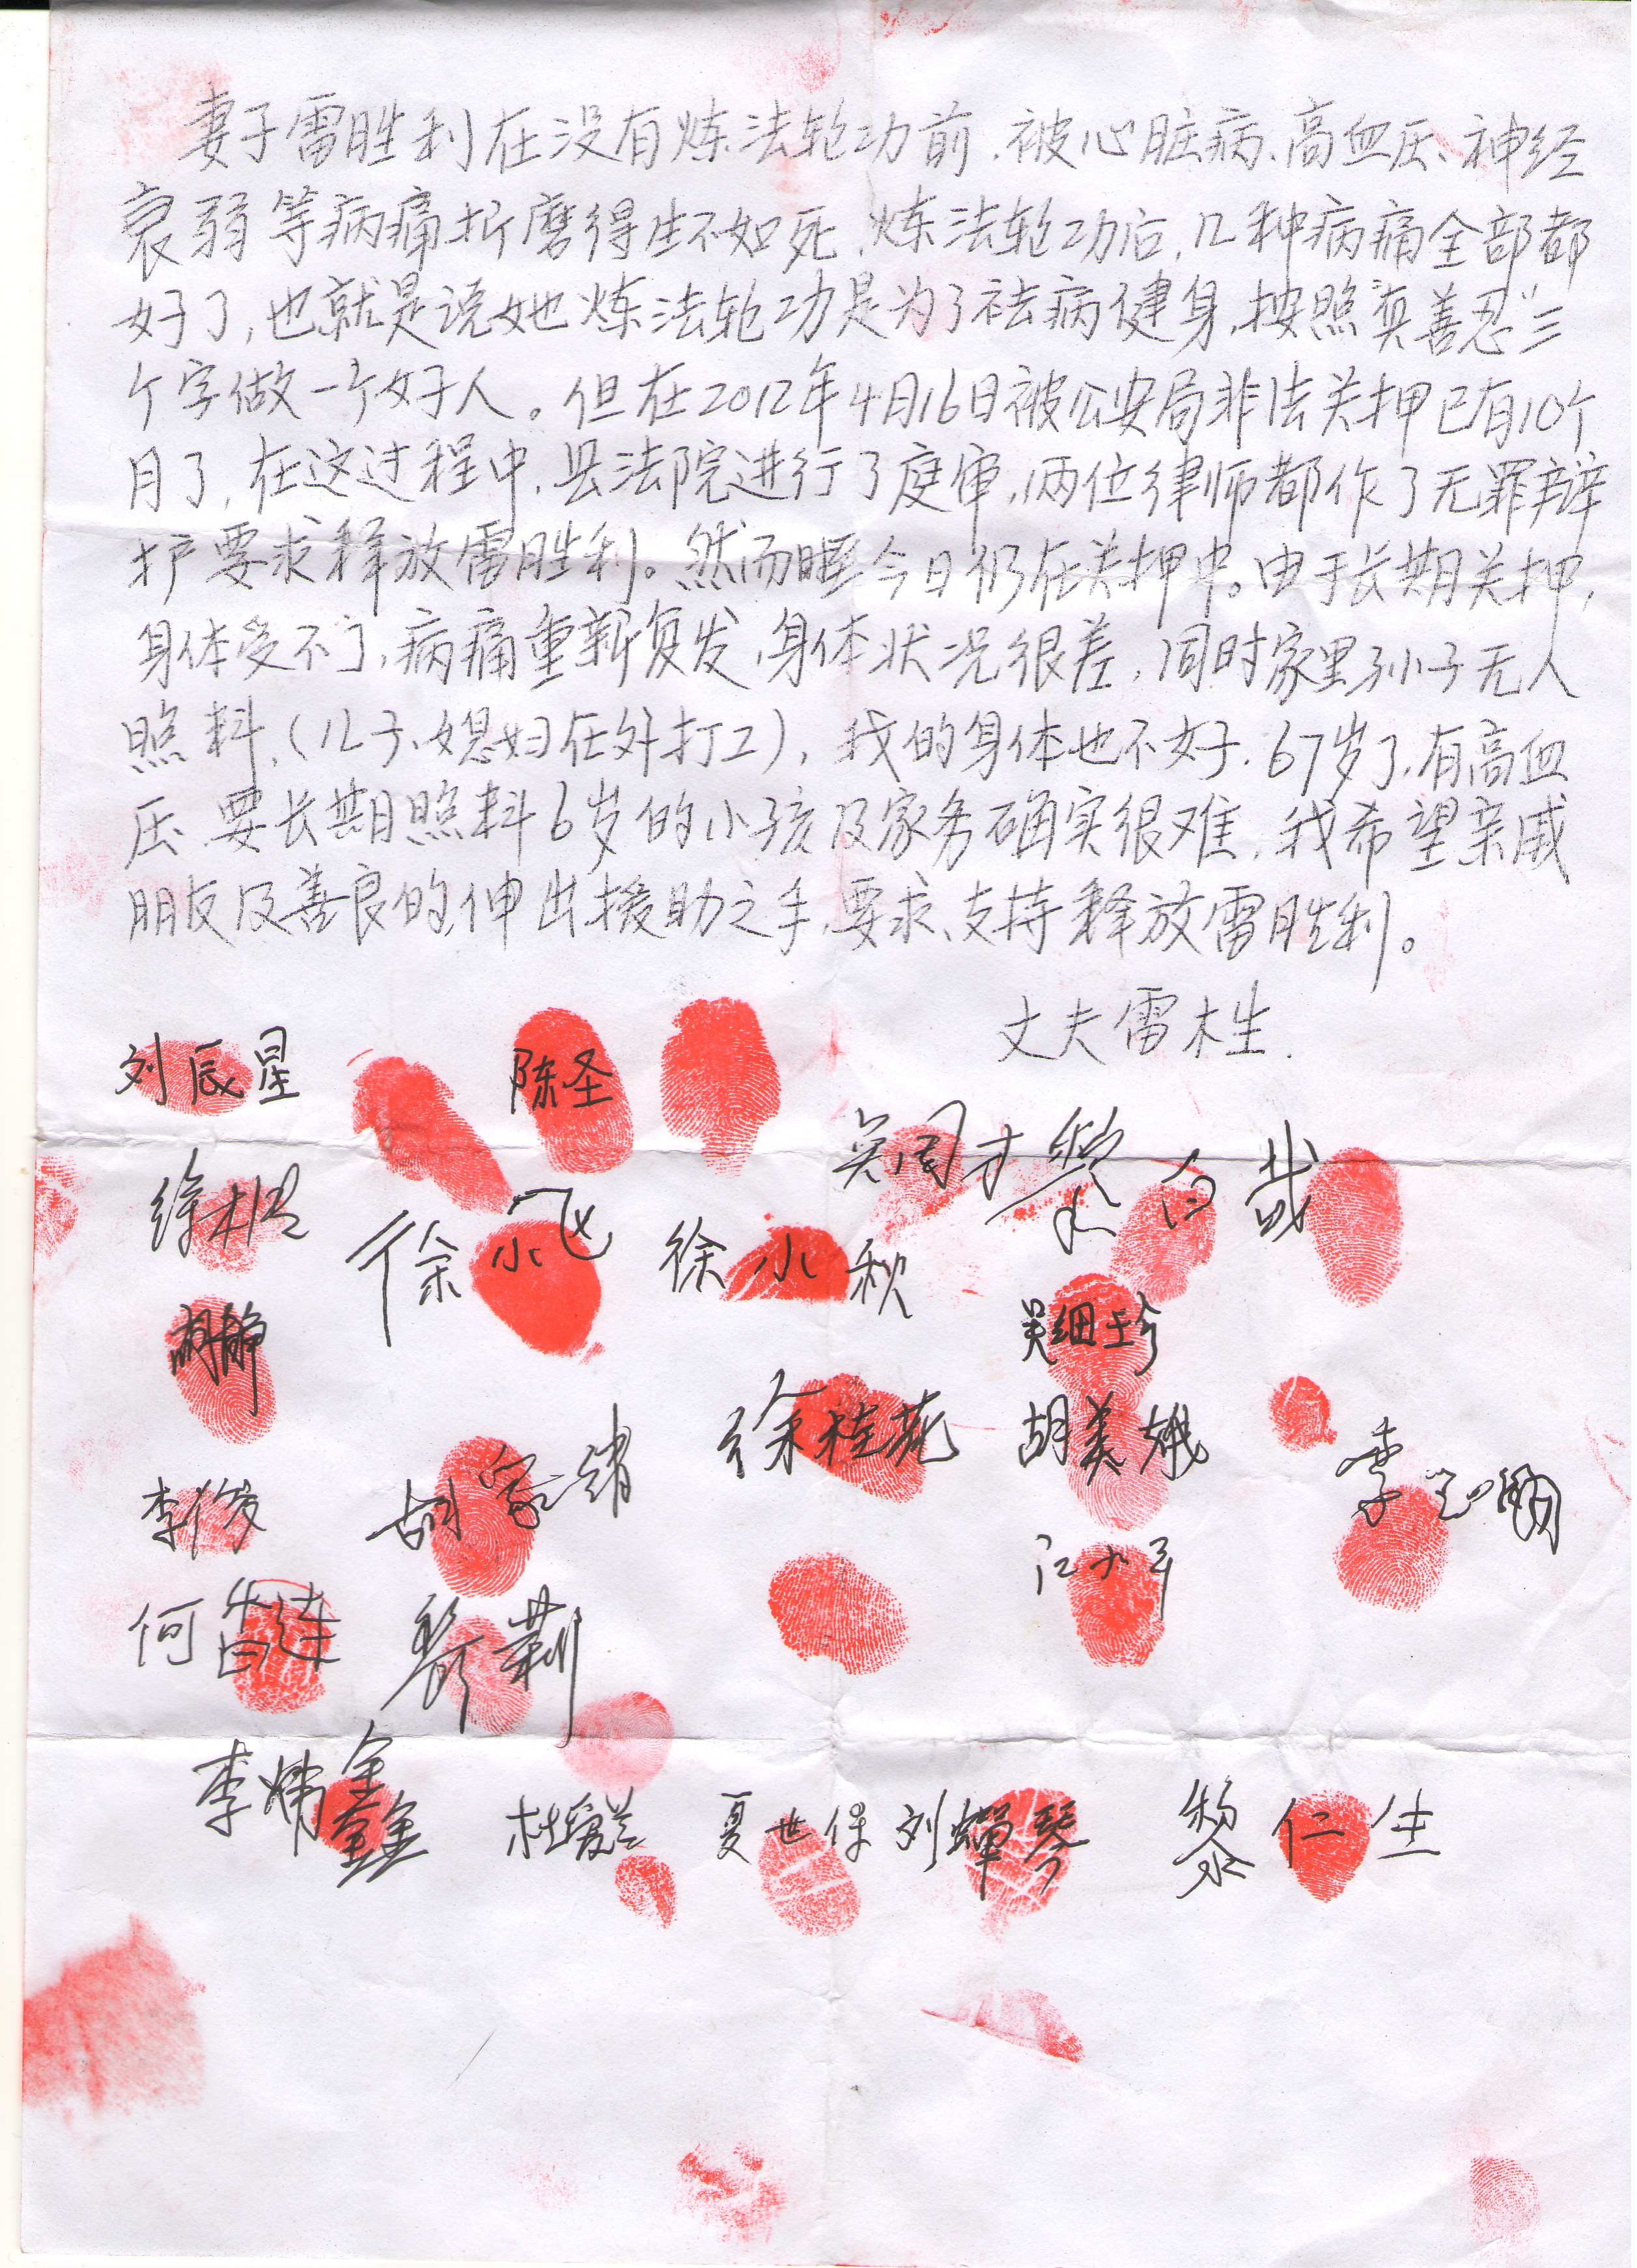 妻子雷胜利在没有炼法轮功前、被心脏病、高血压、神经
衰弱等病痛折磨得生不如死，炼法轮功后，几种病痛全部都
好了，也就是说她炼法轮功是为了祛病健身，按照“真善忍”三
个字做一个好人。但在2012年4月16日被公安局非法关押已有10个
月了，在这过程中，县法院进行了庭审，两位律师都作了无罪辩
护要求释放雷胜利。然而今日仍在关押中。由于长期关押，
身体受不了，病痛重新复发，身体状况很差，同时家里孙子无人
照料，（儿子、媳妇在外打工），我的身体也不好，67岁了，有高血
压，要长期照料6岁的小孩及家务确实很难，我希望亲戚
朋友及善良的，伸出援助之手，要求、支持释放雷胜利。
丈夫雷木生.
刘辰星 陈圣
徐小飞 徐小秋
胡静 吴细珍
徐桂花 胡美娥
李俊 胡家绪
何 连 黎莉
李炜鑫 杜爱兰 夏世保 刘蝉琴 黎仁生